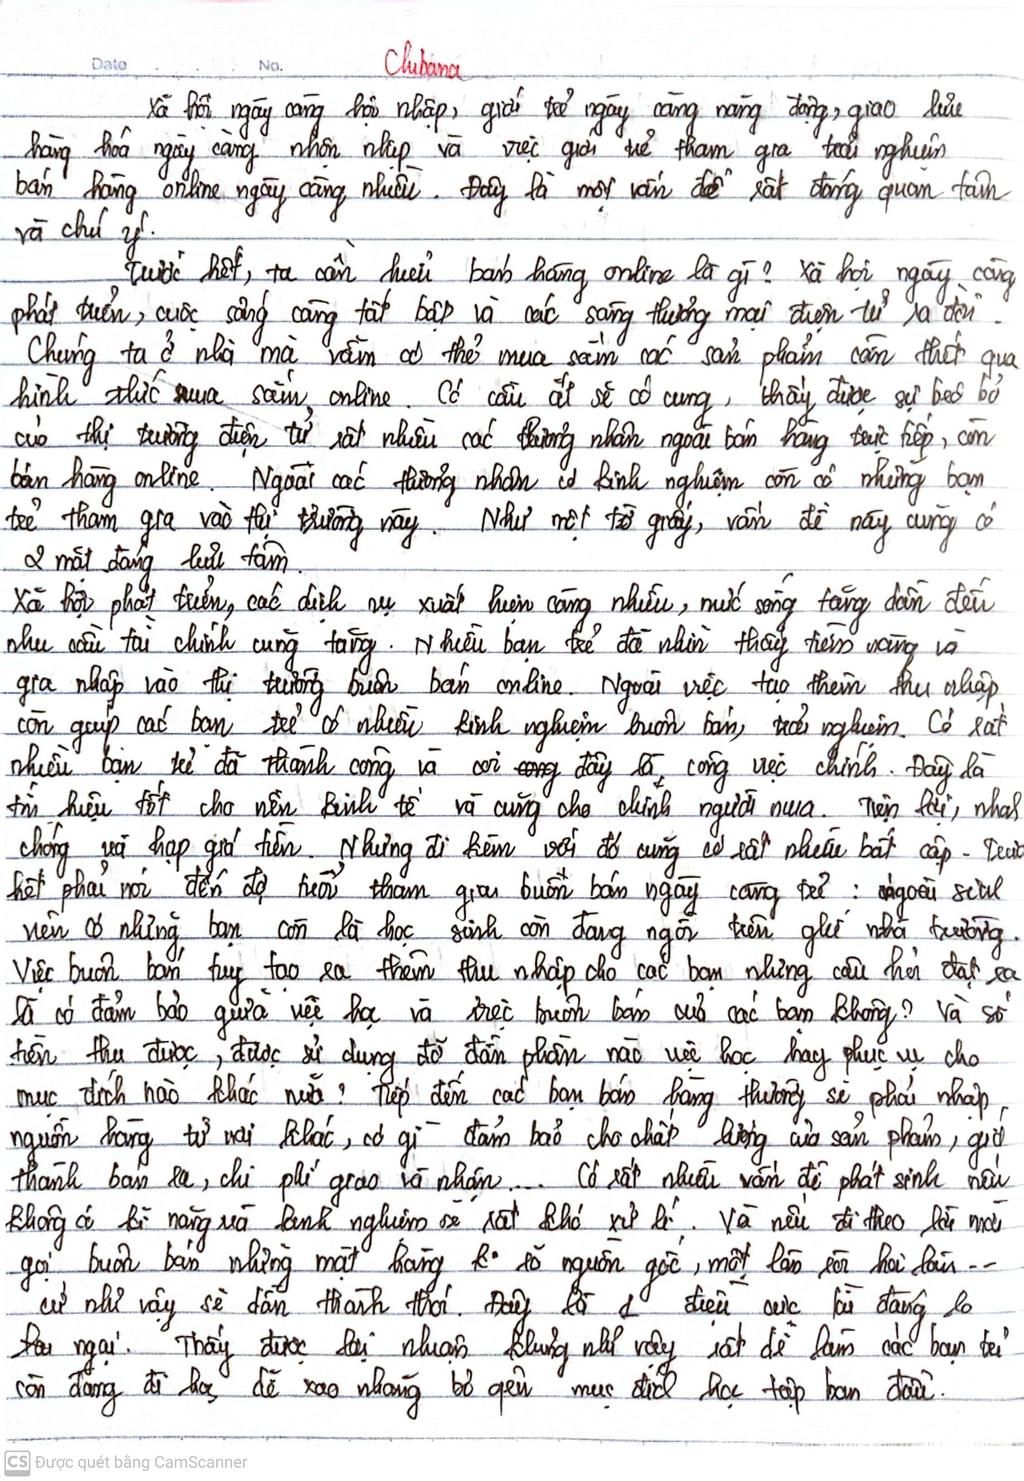 Date No. Chibana
Xã hội ngày càng hội nhập, giới trẻ ngày càng năng động, giao lưu
hàng hoá ngày càng nhộn nhịp và việc giới trẻ tham gia trải nghiệm
bán hàng online ngày càng nhiều. Đây là một vấn đề rất đáng quan tâm
và chú ý.
Trước hết, ta cần hiểu bán hàng online là gì? Xã hội ngày càng
phát triển, cuộc sống càng tất bật và các sàng thương mại điện tử ra đời.
Chúng ta ở nhà mà vẫn có thể mua sắm các sản phẩm cần thiết qua
hình thức mua sắm online. Có cầu ắt sẽ có cung, thấy được sự béo bở
của thị trường điện tử rất nhiều các thương nhân ngoài bán hàng trực tiếp, còn
bán hàng online. Ngoài các thương nhân có kinh nghiệm còn có những bạn
trẻ tham gia vào thị trường này. Như một tờ giấy, vấn đề này cũng có
2 mặt đáng lưu tâm.
Xã hội phát triển, các dịch vụ xuất hiện càng nhiều, mức sống tăng dẫn đến
nhu cầu tài chính cũng tăng. Nhiều bạn trẻ đã nhìn thấy tiềm năng và
gia nhập vào thị trường buôn bán online. Ngoài việc tạo thêm thu nhập
còn giúp các bạn trẻ có nhiều kinh nghiệm buôn bán, trải nghiệm. Có rất
nhiều bạn trẻ đã thành công và coi đây là công việc chính. Đây là
tín hiệu tốt cho nền kinh tế và cũng cho chính người mua. Tiện lợi, nhanh
chóng và hạp giá tiền. Nhưng đi kèm với đó cũng có rất nhiều bất cập. Trước
hết phải nói đến độ tuổi tham gia buôn bán ngày càng trẻ: ngoài sinh
viên có những bạn còn là học sinh còn đang ngồi trên ghế nhà trường.
Việc buôn bán tuy tạo ra thêm thu nhập cho các bạn nhưng câu hỏi đặt ra
là có đảm bảo giữa việc học và việc buôn bán của các bạn không? Và số
tiền thu được, được sử dụng đỡ đần phần nào việc học hay phục vụ cho
mục đích nào khác nữa? Tiếp đến các bạn bán hàng thường sẽ phải nhập
nguồn hàng từ nơi khác, có gì đảm bảo cho chất lượng của sản phẩm, giá
thành bán ra, chi phí giao và nhận.... Có rất nhiều vấn đề phát sinh nếu
không có kĩ năng và kinh nghiệm sẽ rất khó xử lí. Và nếu đi theo lối mời
gọi buôn bán những mặt hàng k rõ nguồn gốc, một lần rồi hai lần...
cứ như vậy sẽ dần thành thói. Đây là 1 điều cực kì đáng lo
ngại. Thấy được lợi nhuận khủng như vậy rất dễ làm các bạn trẻ
còn đang đi học dễ xao nhãng bỏ quên mục đích học tập ban đầu.
CS Được quét bằng CamScanner